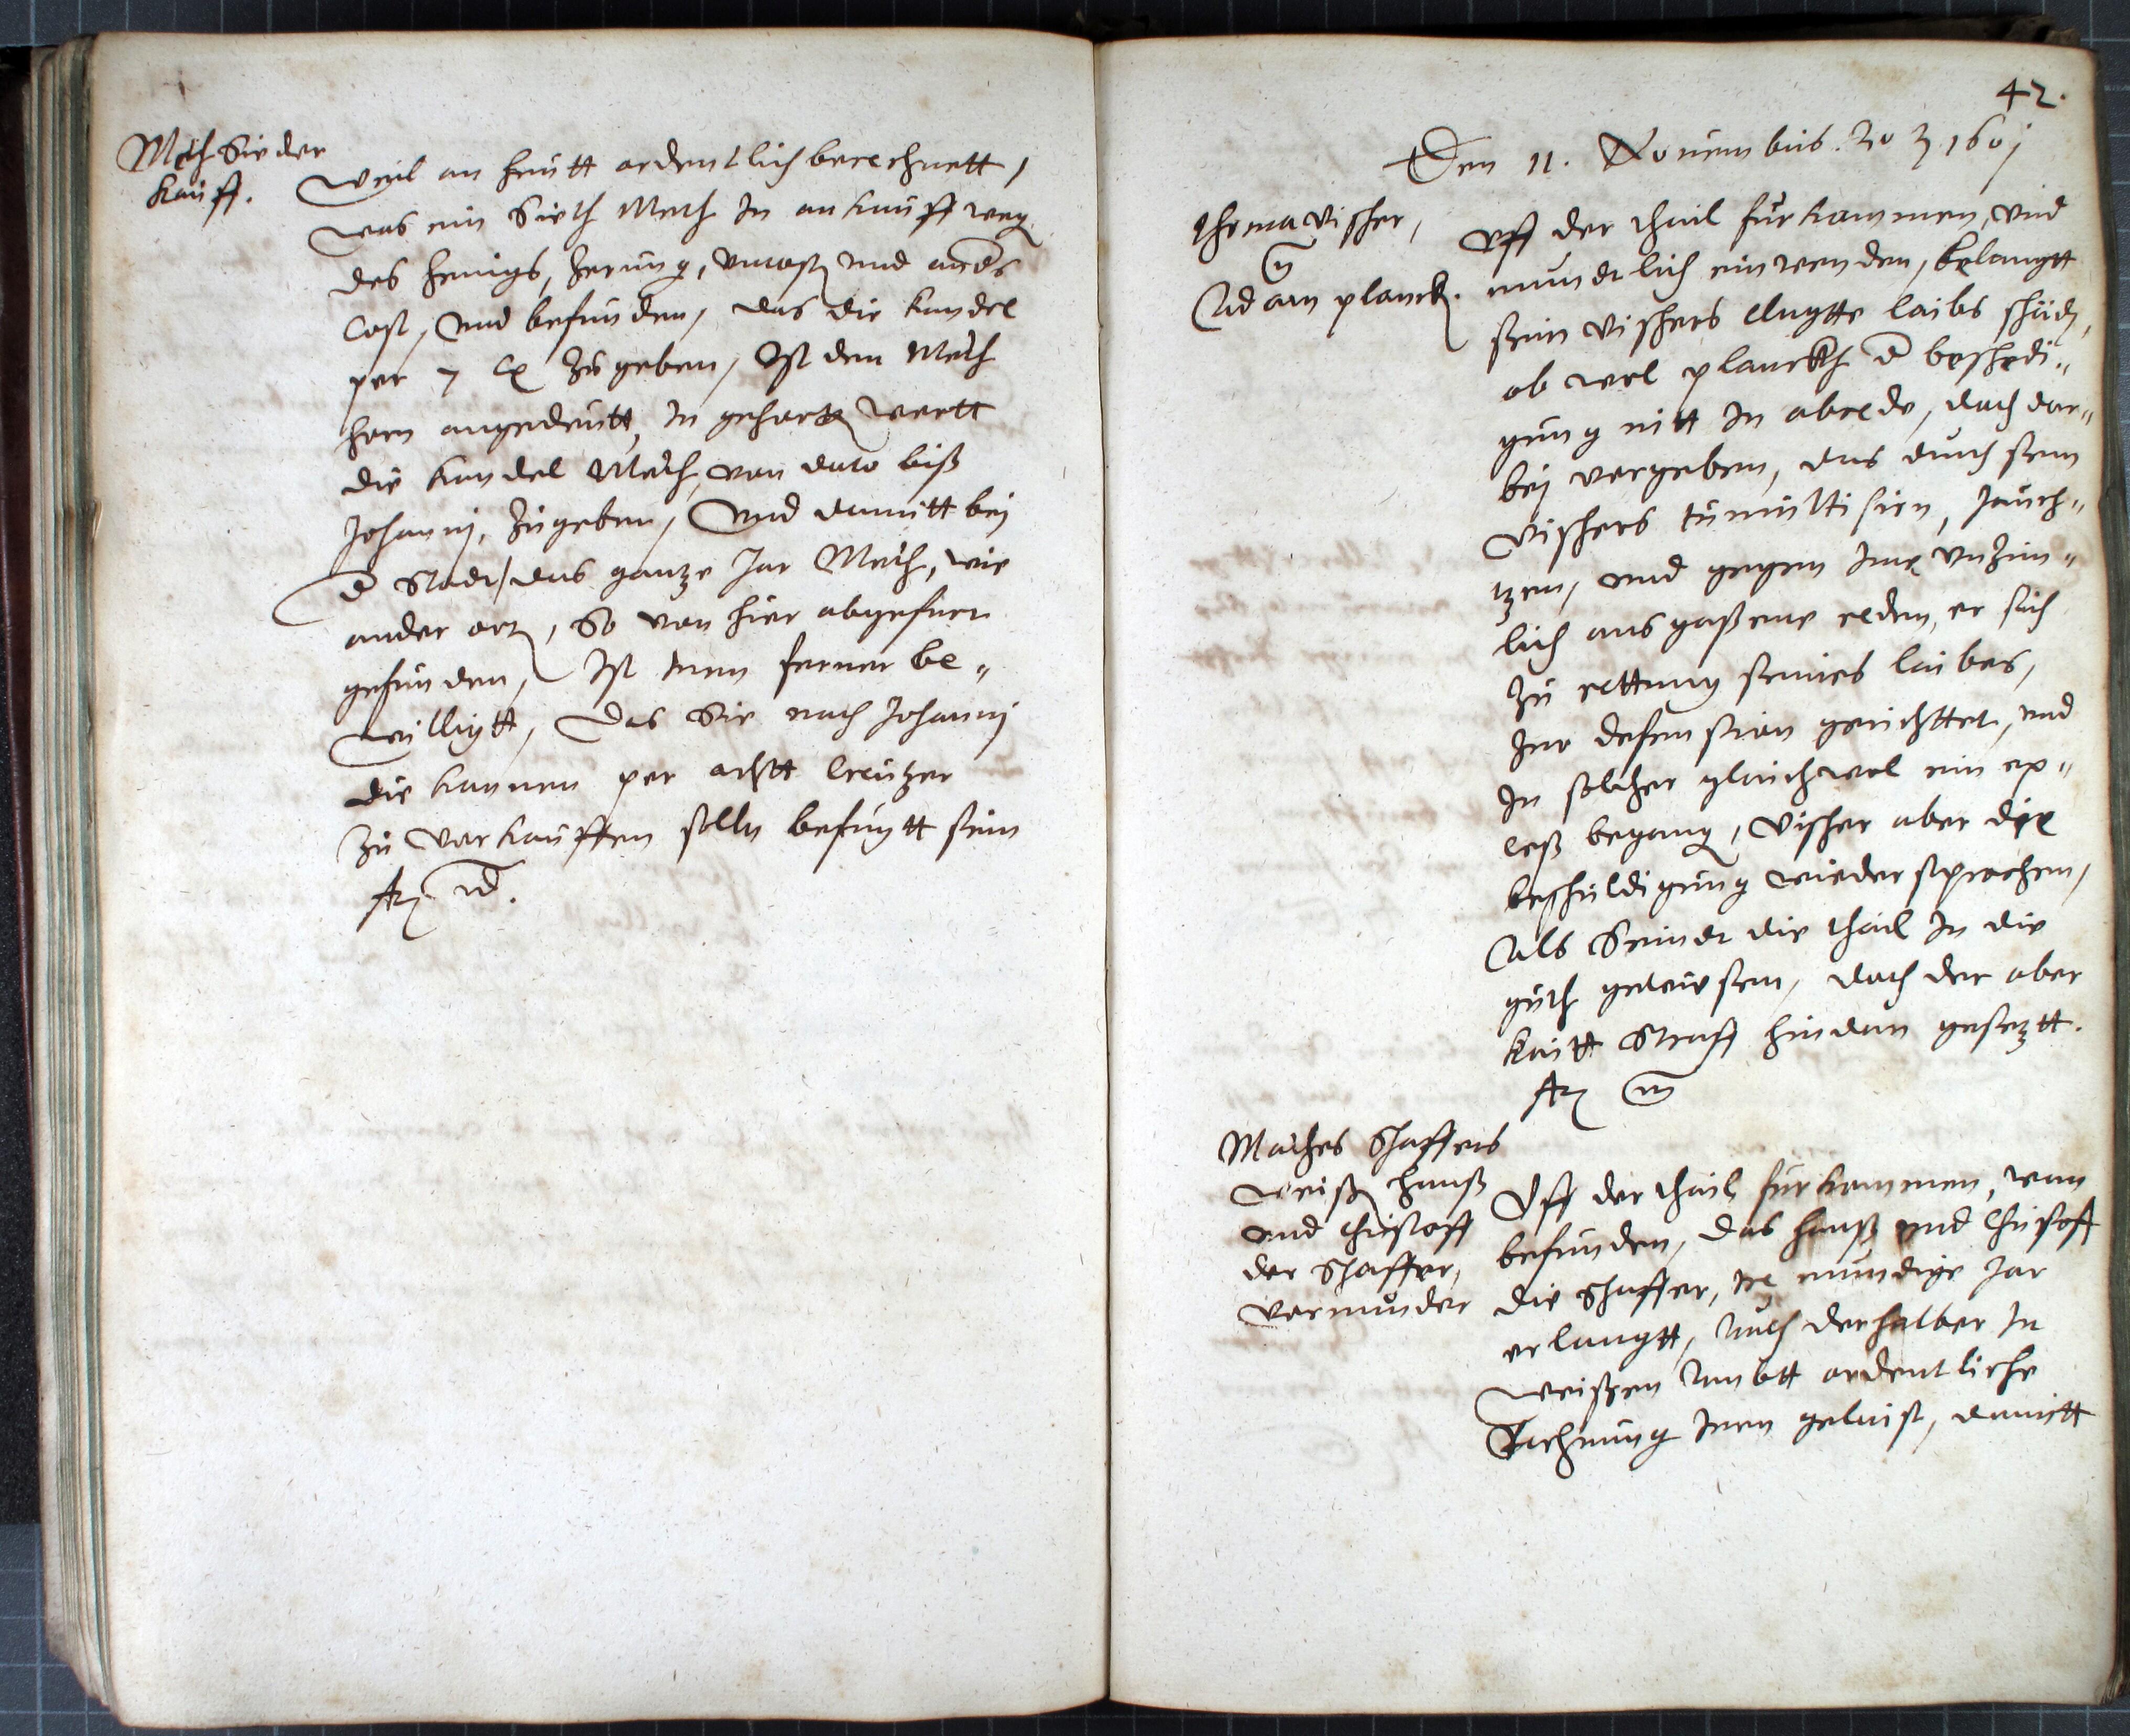 Meth Sieder
kauff.
Weil an heutt ordentlich berechnett,
was ein Sieth Meth In ankauff weg
des henigs, Zerung, vncost, und anders
Cost, und befunden, das die kandel
per 7 zu geben, Ist den Meth
hern angedeutt, In gehortz wertt
die kandel Meth, von dato biß
Johannj, Zugeben, und damitt bej
d Stadt, das gantze Jar Meth, wie
ander ort, So von hier abgefuert
gefunden, Ist inen ferner be„
willigtt, das Sie nach Johannj
die kannen per achtt Creutzer
zu verkauffen solln befugtt sein
42.
Den 11. Nouembris. Ao 1601
Thoma Vischer,
Adam planck.
Vff der thail furkommen, und
mundtlich einwenden, belangtt
sein Vischers clagtte laibs schäd,
ob wol planckh d beschedi„
gung nitt In abrede, doch dar„
bej vorgeben, das durch sein
Vischers tumultisirn, Jauch„
tzen, und gegen Ime vnzim„
lich ausgoßene reden, er sich
zu rettung seines laibes,
Zur defension gerichttet, und
In solcher gleichwol ein ex„
ceß begang, Vischer aber die
beschuldigung wiedersprochen,
Als Seindt die thail In die
guth gewiesen, doch der ober
kaitt Straff hindan gesetztt.
Mathes Schaffers
weiß, Hanß
und Christoff
der Schaffer,
vormunder
Vff der thail furkommen, wan
befunden, das Hanß und Christoff
die Schaffer, ire mundige Jar
erlangtt, Auch derhalber In
Weißen Ambtt ordentliche
Rechnung Inen gelaist, damitt